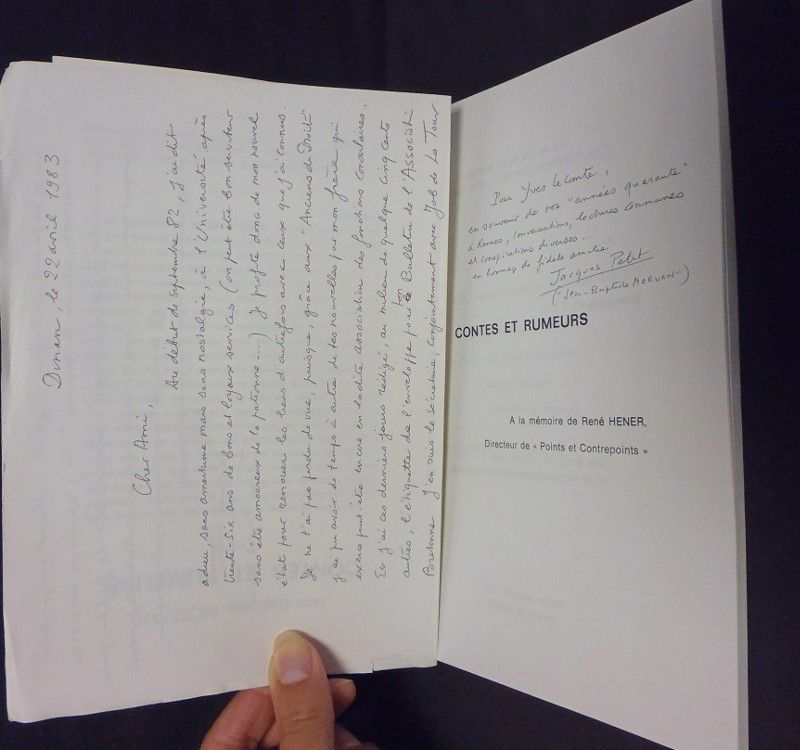 Dinan, le 22 avril 1983
Cher Ami,
Au début de septembre 82, j'ai dit
adieu, sans amertume mais sans nostalgie, à l'Université après
trente-six ans de bons et loyaux services (on peut être bon serviteur
sans être amoureux de la patronne....) Je profite donc de mon nouvel
état pour renouer les liens d'autrefois avec ceux que j'ai connus.
Je ne t'ai pas perdu de vue, puisque, grâce aux "Anciens du Droit"
j'ai pu avoir de temps à autre de tes nouvelles par mon frère qui
exerce peut-être encore en ladite association des fonctions consulaires.
Et j'ai ces derniers jours rédigé, au milieu de quelque cinq cents
autres, l'étiquette de l'enveloppe pour le Bulletin de l'Association
Bretonne. J'en suis le secrétaire, conjointement avec Job de La Tour
Pour Yves Le Conte,
en souvenir de nos "années quarante"
à Rennes, conversations, lectures communes
et conspirations diverses...
en hommage de fidèle amitié
Jacques Petit
("Jean-Baptiste MORVAN")
CONTES ET RUMEURS
A la mémoire de René HENER,
Directeur de « Points et Contrepoints »